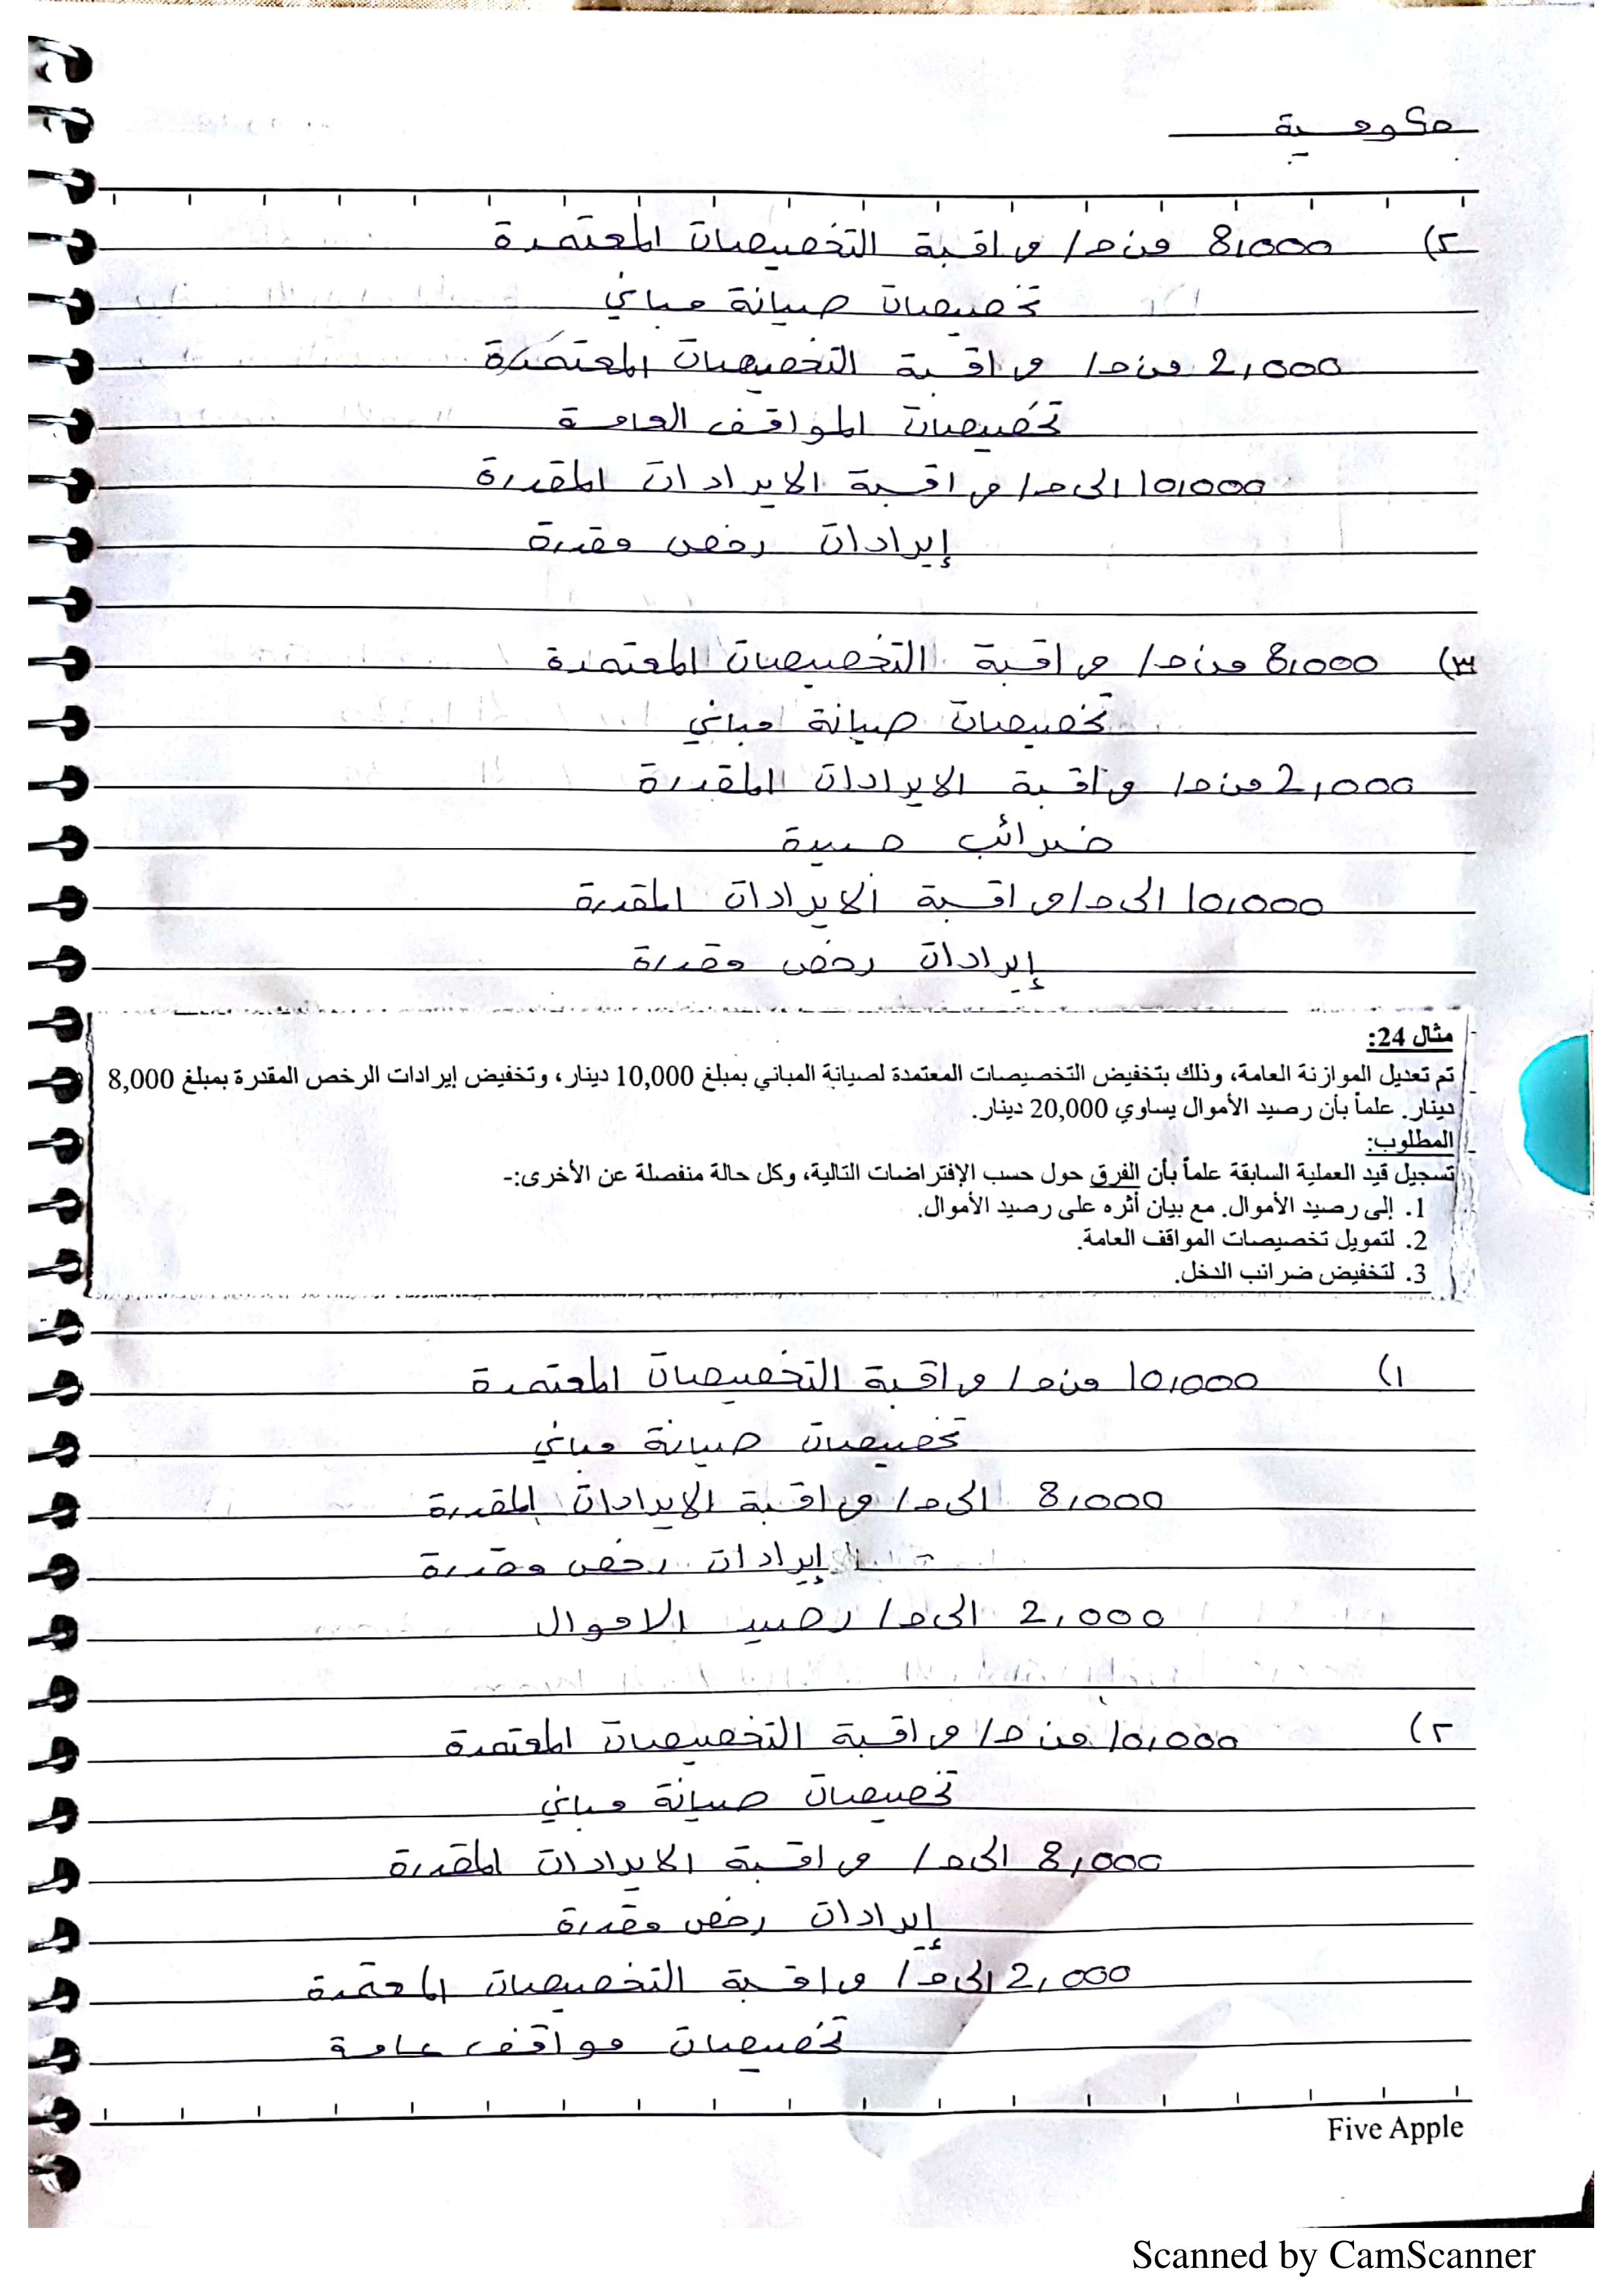 حكومية
٢) 8,000 من حـ/ مراقبة التخصيصات المعتمدة
تخصيصات صيانة مباني
2,000 من حـ/ مراقبة التخصيصات المعتمدة
تخصيصات المواقف العامة
10,000 الى حـ/ مراقبة الايرادات المقدرة
إيرادات رخص مقدرة
٣) 8,000 من حـ/ مراقبة التخصيصات المعتمدة
تخصيصات صيانة مباني
2,000 من حـ/ مراقبة الايرادات المقدرة
ضرائب
10,000 الى حـ/ مراقبة الايرادات المقدرة
إيرادات رخص مقدرة
مثال 24:
تم تعديل الموازنة العامة، وذلك بتخفيض التخصيصات المعتمدة لصيانة المباني بمبلغ 10,000 دينار، وتخفيض إيرادات الرخص المقدرة بمبلغ 8,000
دينار. علماً بأن رصيد الأموال يساوي 20,000 دينار.
المطلوب:
تسجيل قيد العملية السابقة علماً بأن الفرق حول حسب الإفتراضات التالية، وكل حالة منفصلة عن الأخرى:-
1. إلى رصيد الأموال. مع بيان أثره على رصيد الأموال.
2. لتمويل تخصيصات المواقف العامة.
3. لتخفيض ضرائب الدخل.
١) 10,000 من حـ/ مراقبة التخصيصات المعتمدة
تخصيصات صيانة مباني
8,000 الى حـ/ مراقبة الايرادات المقدرة
إيرادات رخص مقدرة
2,000 الى حـ/ رصيد الاموال
٢) 10,000 من حـ/ مراقبة التخصيصات المعتمدة
تخصيصات صيانة مباني
8,000 الى حـ/ مراقبة الايرادات المقدرة
إيرادات رخص مقدرة
2,000 الى حـ/ مراقبة التخصيصات المعتمدة
تخصيصات مواقف عامة
Five Apple
Scanned by CamScanner